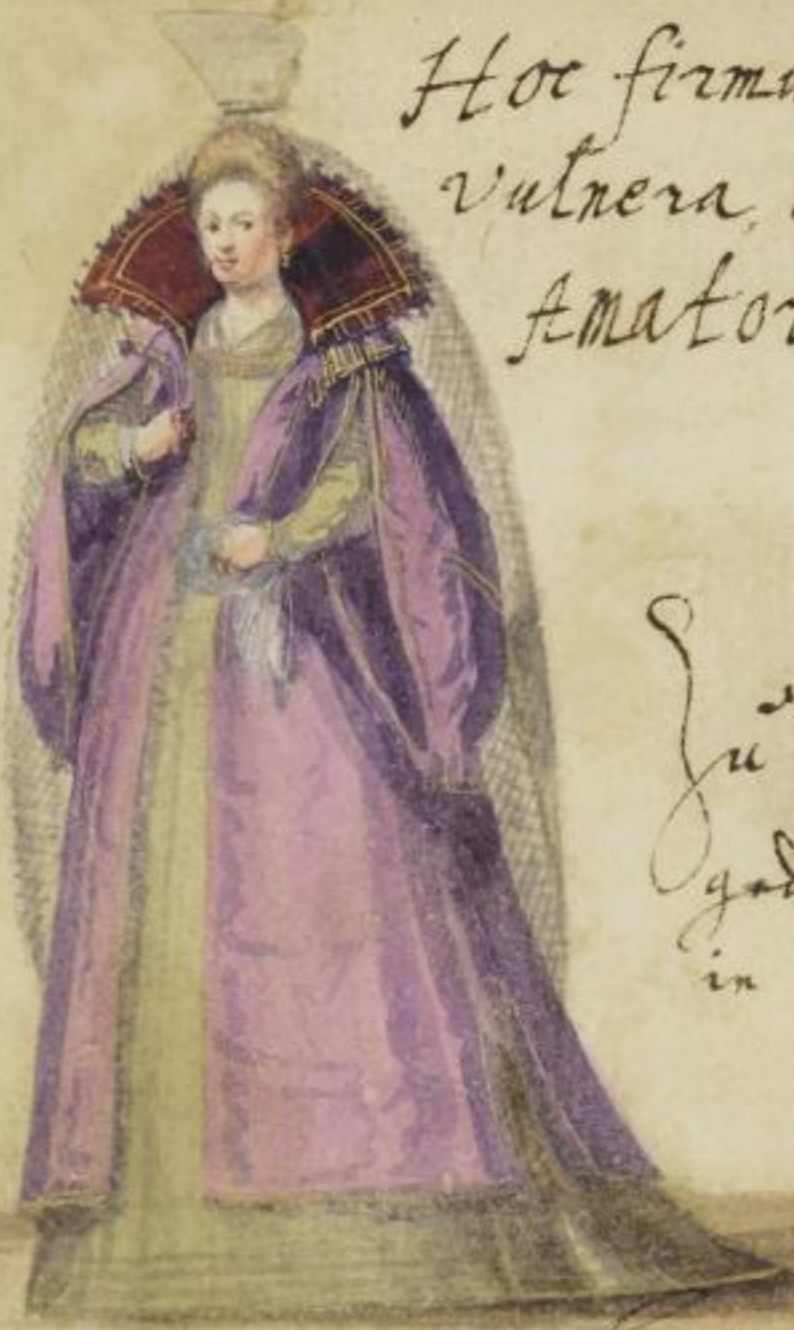 Hoc firm
Vulnera,
Amator
Zu
ged
in